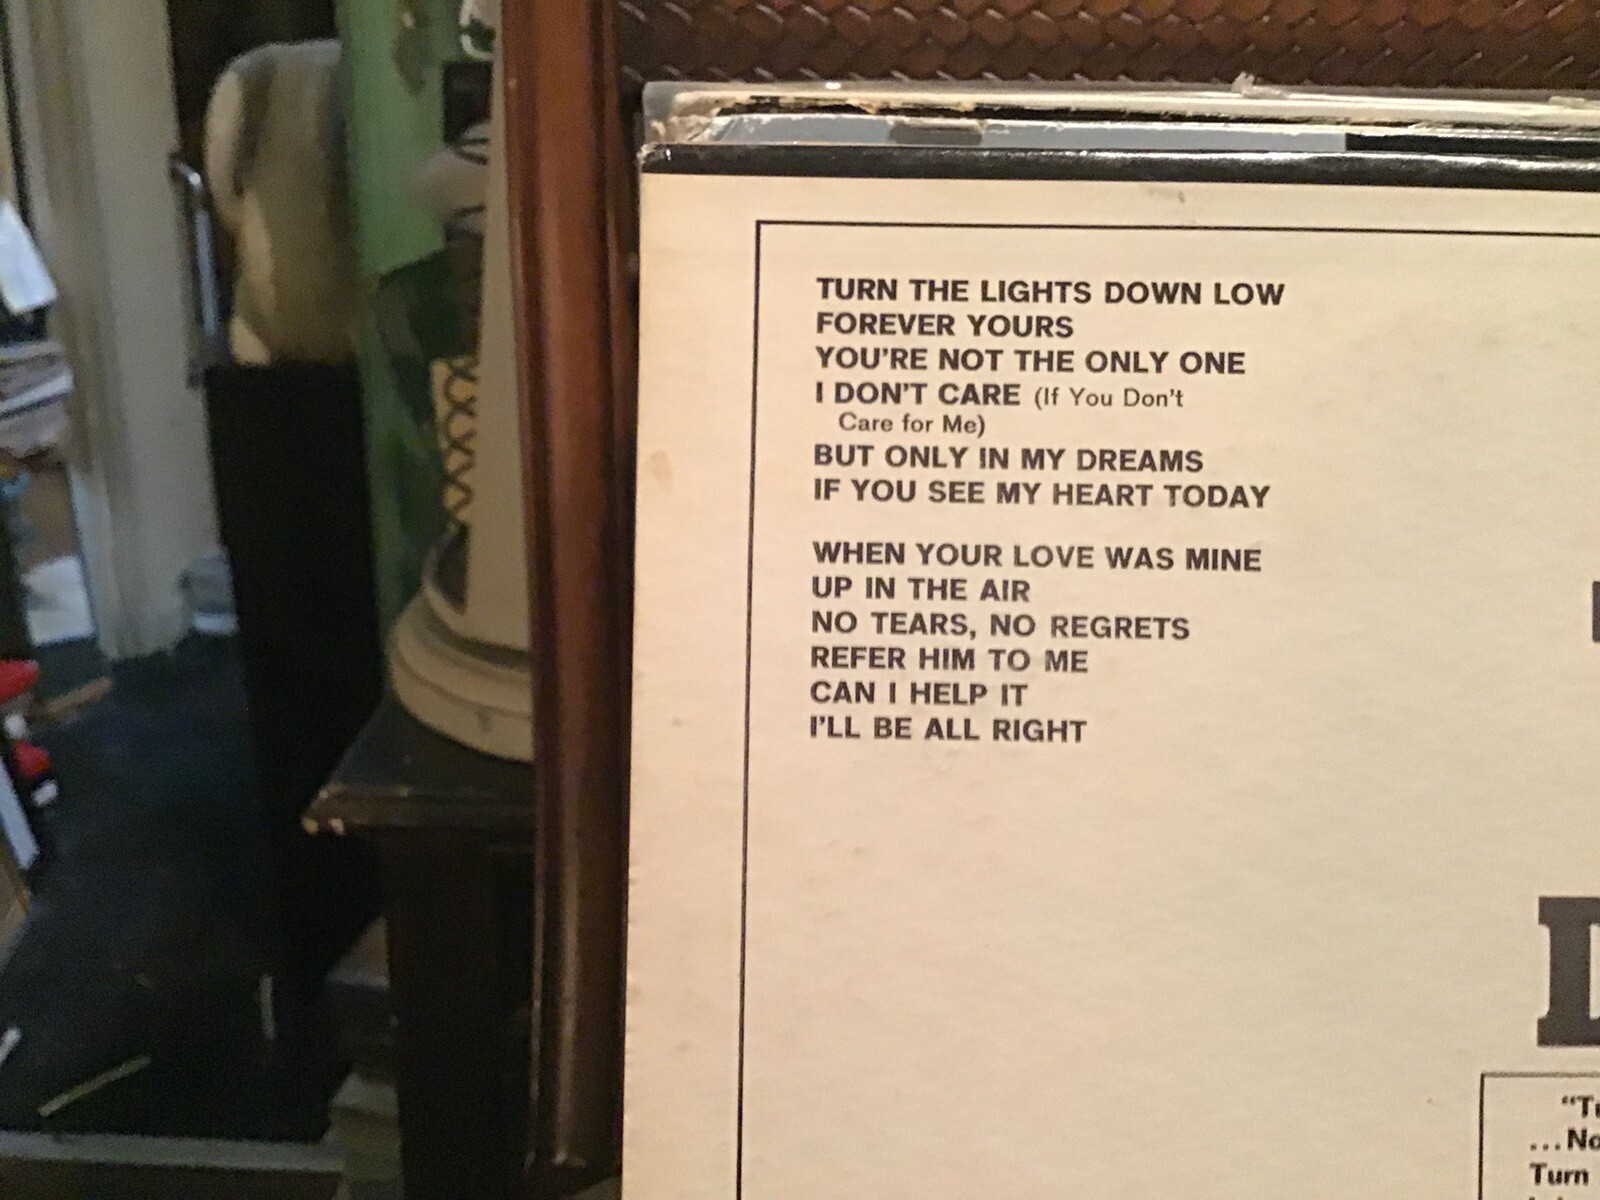 TURN THE LIGHTS DOWN LOW
FOREVER YOURS
YOU'RE NOT THE ONLY ONE
I DON'T CARE (If You Don't
Care for Me)
BUT ONLY IN MY DREAMS
IF YOU SEE MY HEART TODAY
WHEN YOUR LOVE WAS MINE
UP IN THE AIR
NO TEARS, NO REGRETS
REFER HIM TO ME
CAN I HELP IT
I'LL BE ALL RIGHT
...No
Turn